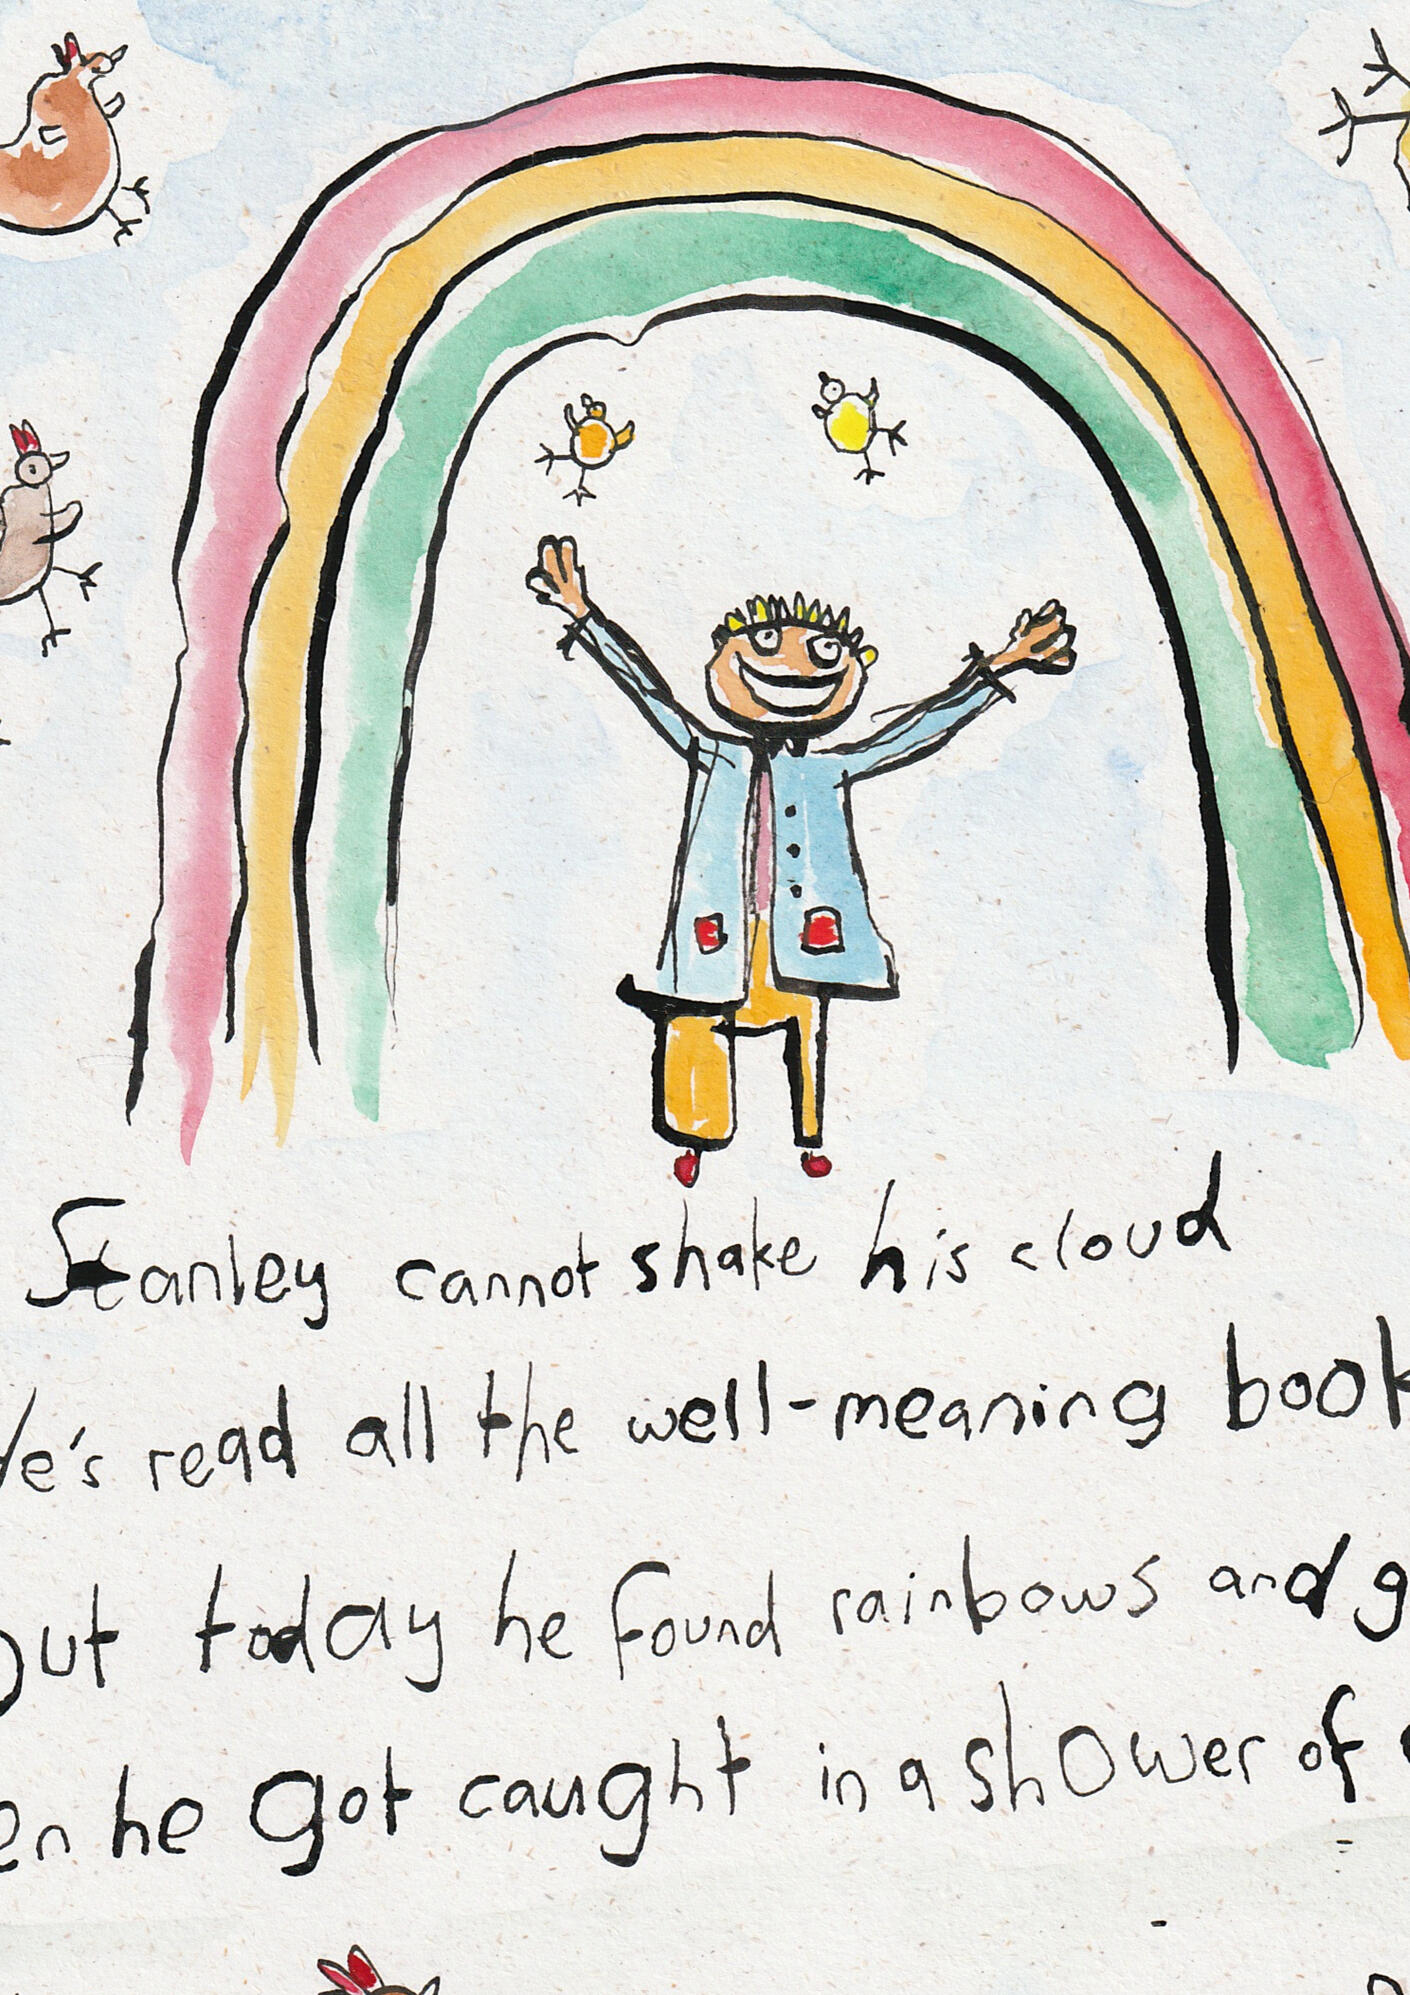 Stanley cannot shake his cloud
He's read all the well-meaning book
but today he found rainbows and g
en he got caught in a shower of